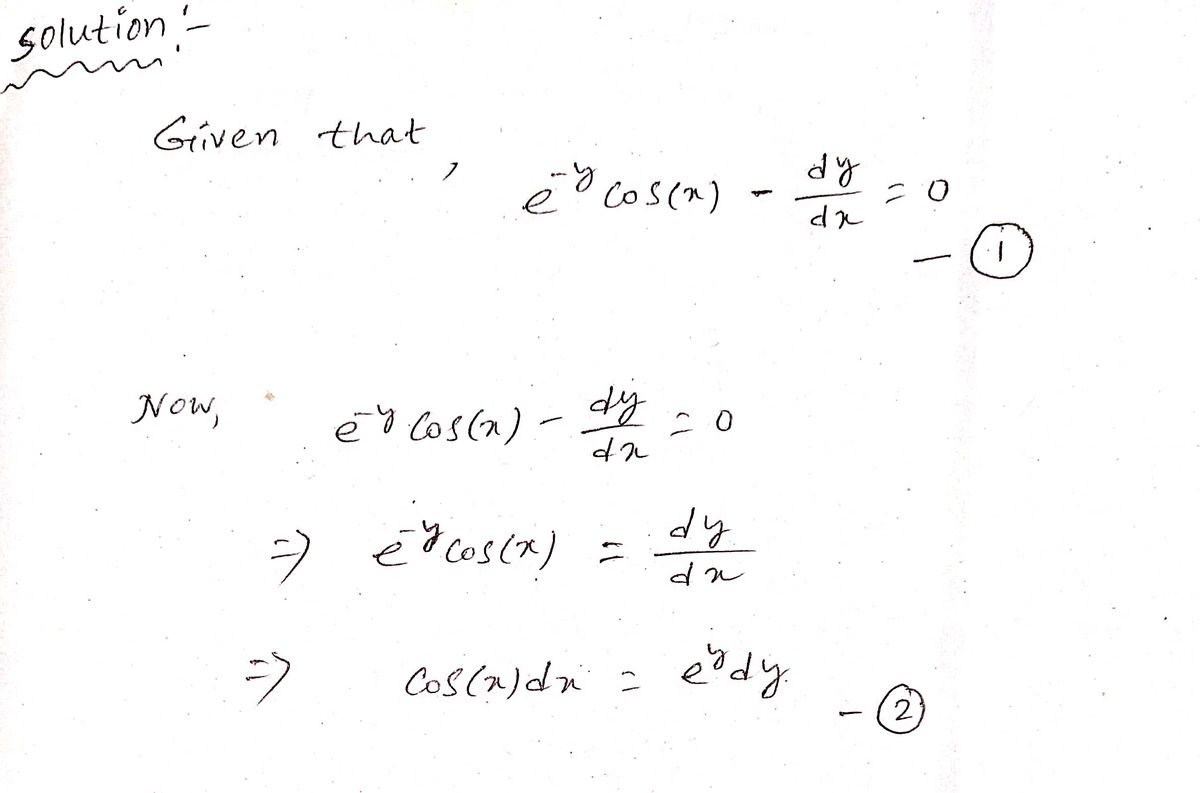 solution :-
Given that,
e^{-y} cos(x) - dy/dx = 0
- ①
Now, e^{-y} cos(x) - dy/dx = 0
=> e^{-y} cos(x) = dy/dx
=> cos(x)dx = e^y dy.
- ②